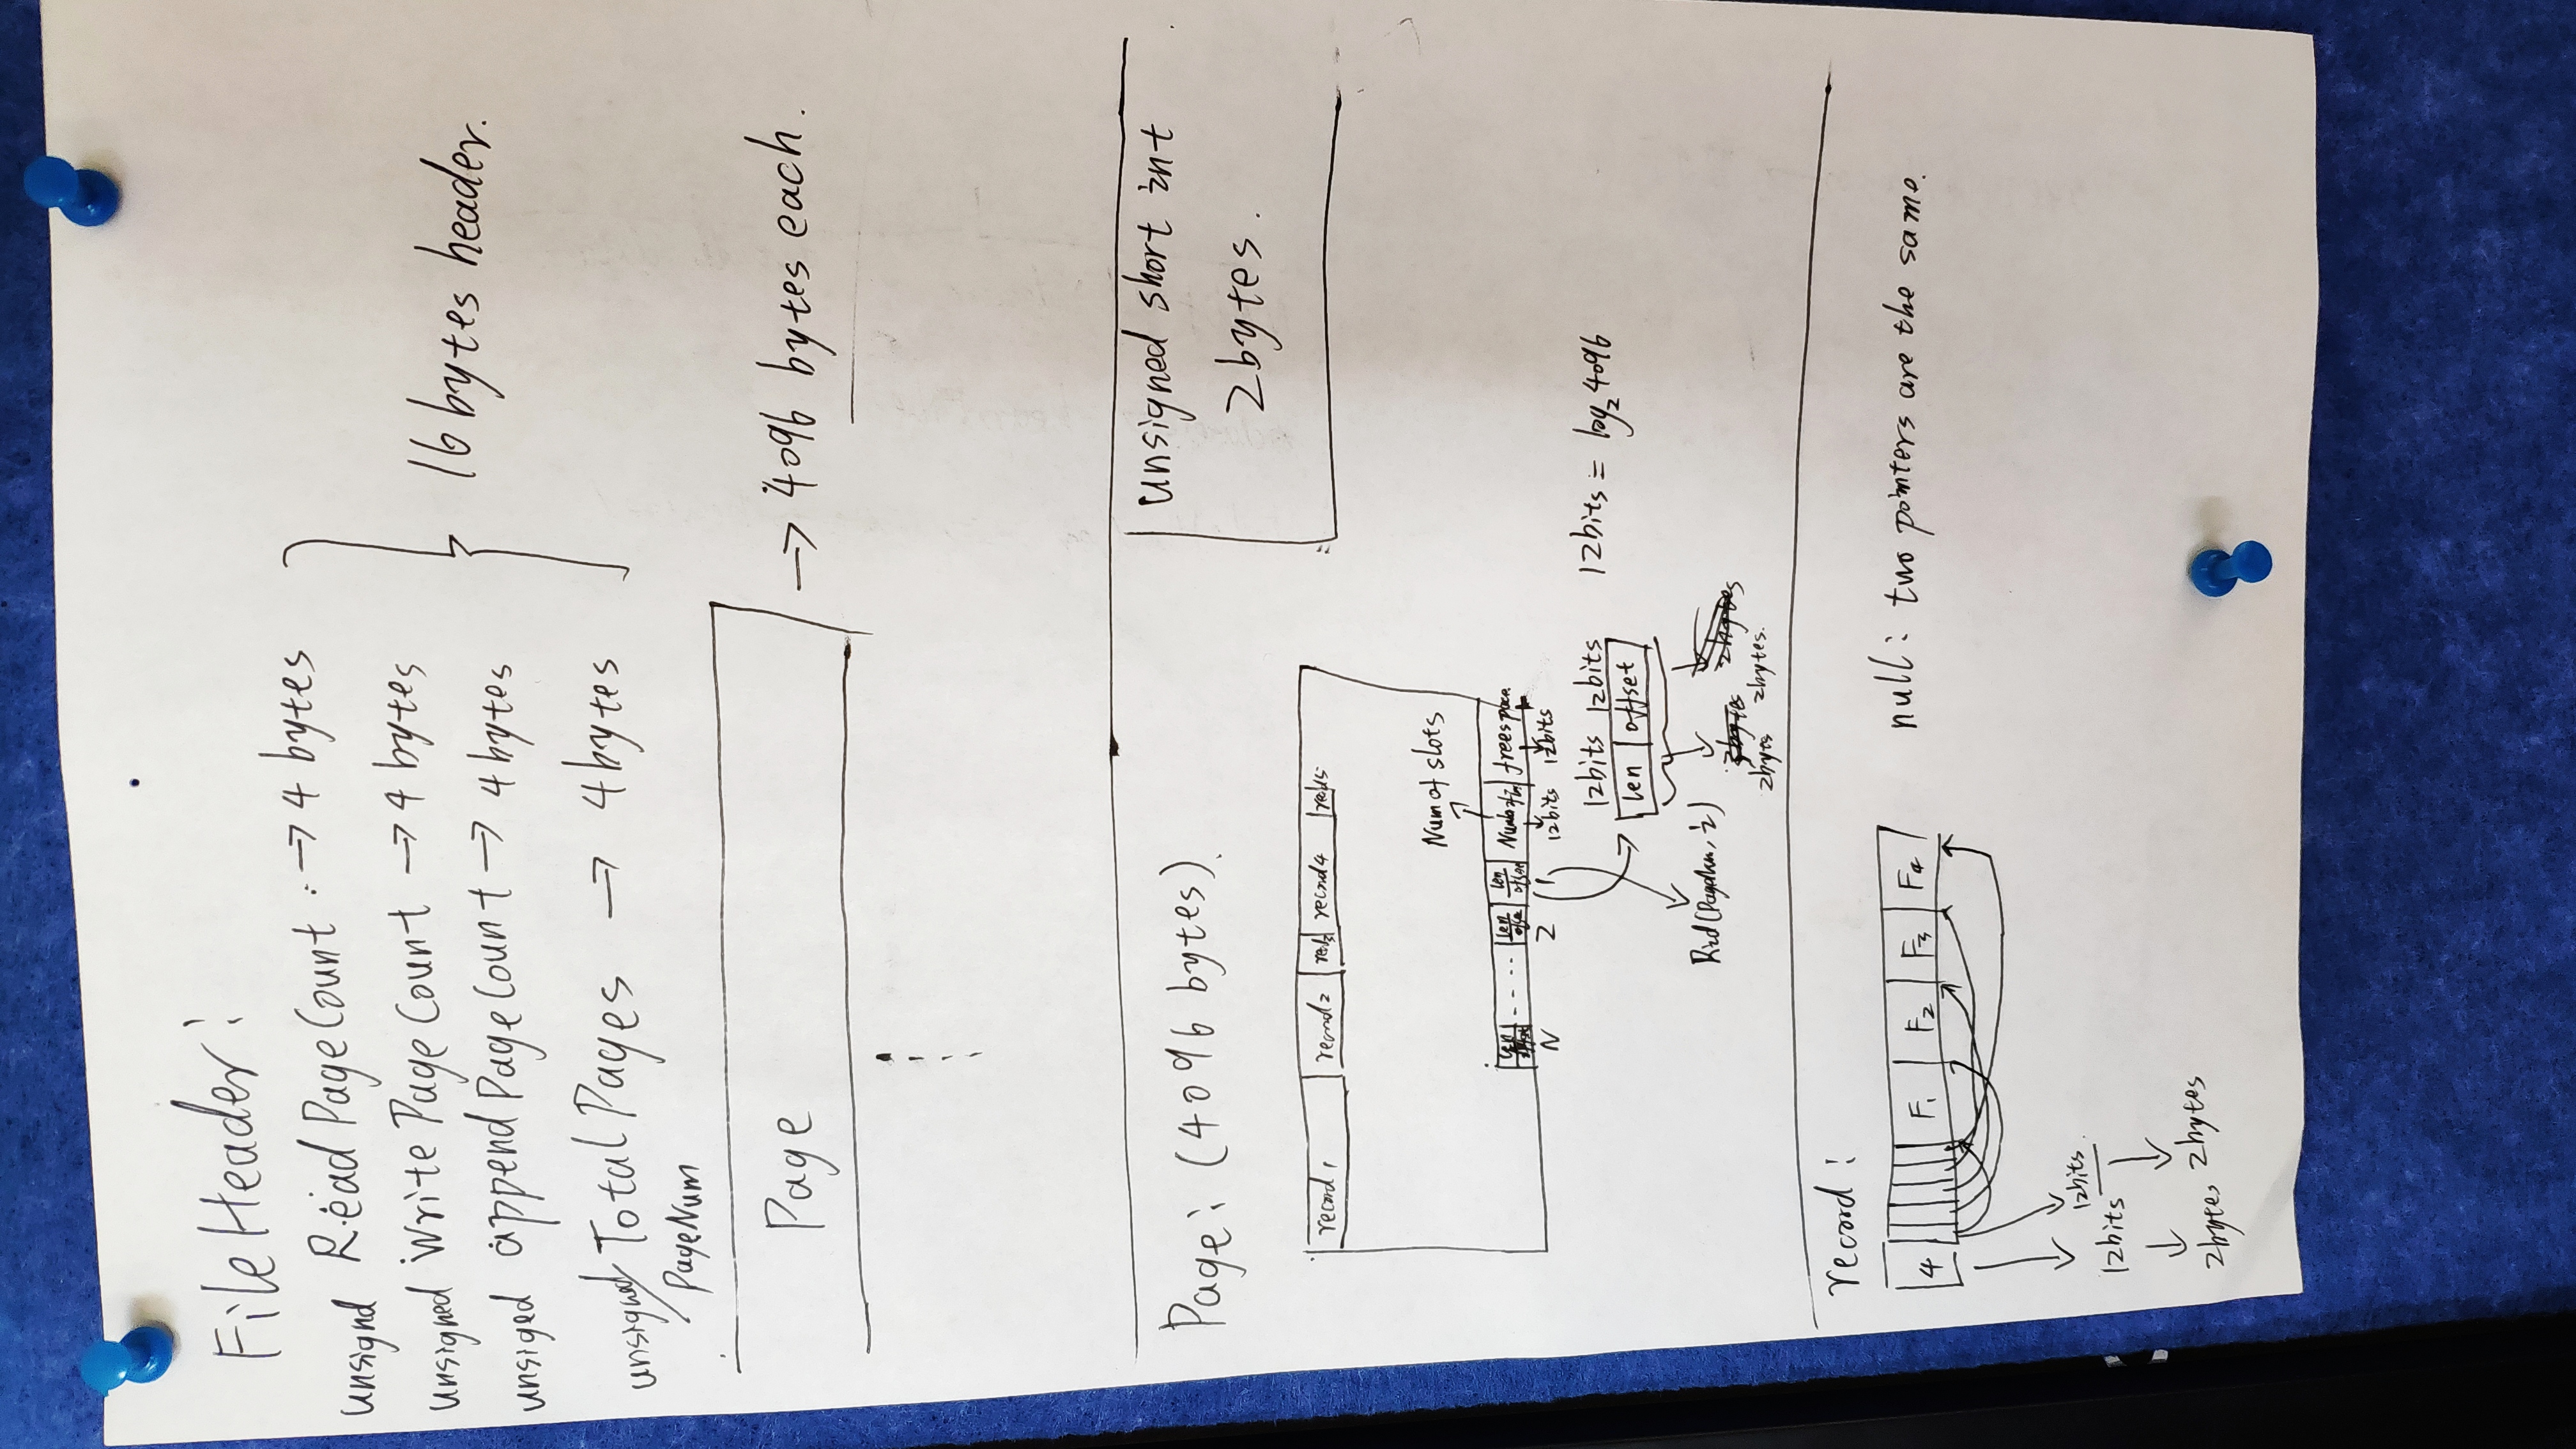 FileHeader:
unsignd ReadPageCount → 4 bytes
unsigned WritePageCount → 4 bytes
unsiged appendPageCount → 4 bytes
16 bytes header.
unsigned/ TotalPages → 4 bytes
PageNum
Page → 4096 bytes each.
Page: (4096 bytes).
unsigned short int
2bytes.
record1 record2 record4
Num of slots
len offset ---- len offset len offset freespace
N 2 1 12bits 12bits
12bits 12bits
12bits = log₂4096
len offset
Rid(PageNum, i)
2byts 2bytes.
record:
4 F₁ F₂ F₃ F₄
null: two pointers are the same.
12bits
12bits
2bytes 2bytes